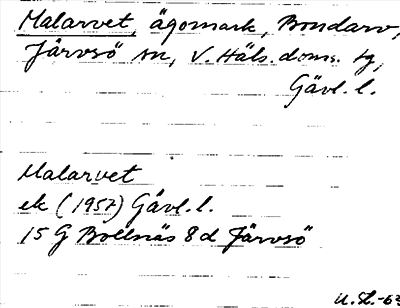 Malarvet, ägomark, Bondarv,
Järvsö sn, V. Häls. doms. tg,
Gävl. l.
Malarvet
ek (1957) Gävl. l.
15 G Bollnäs 8 d Järvsö
U. St. -63